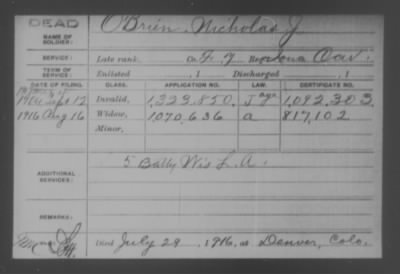 DEAD
O'Brien, Nicholas J
NAME OF SOLDIER:
SERVICE: Late rank, Co. F, 7 Reg't Iowa Cav.
TERM OF SERVICE: Enlisted , 1 Discharged , 1
DATE OF FILING. CLASS. APPLICATION NO. LAW. CERTIFICATE NO.
Sept 12 Invalid, 1,323,850. 1,092,303
1916 Aug 16 Widow, 1070,636 a 817,102
Minor,
5 Batty Wis L. A.
ADDITIONAL SERVICES:
REMARKS:
Died July 29, 1916, at Denver, Colo.